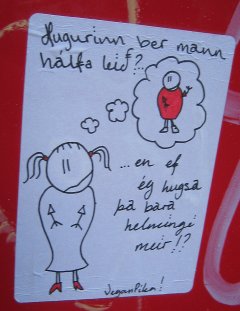 Hugurinn ber mann
hálfa leið?
...en ef
ég hugsa
þá bara
helmingi
meir!?
VeganPíka!